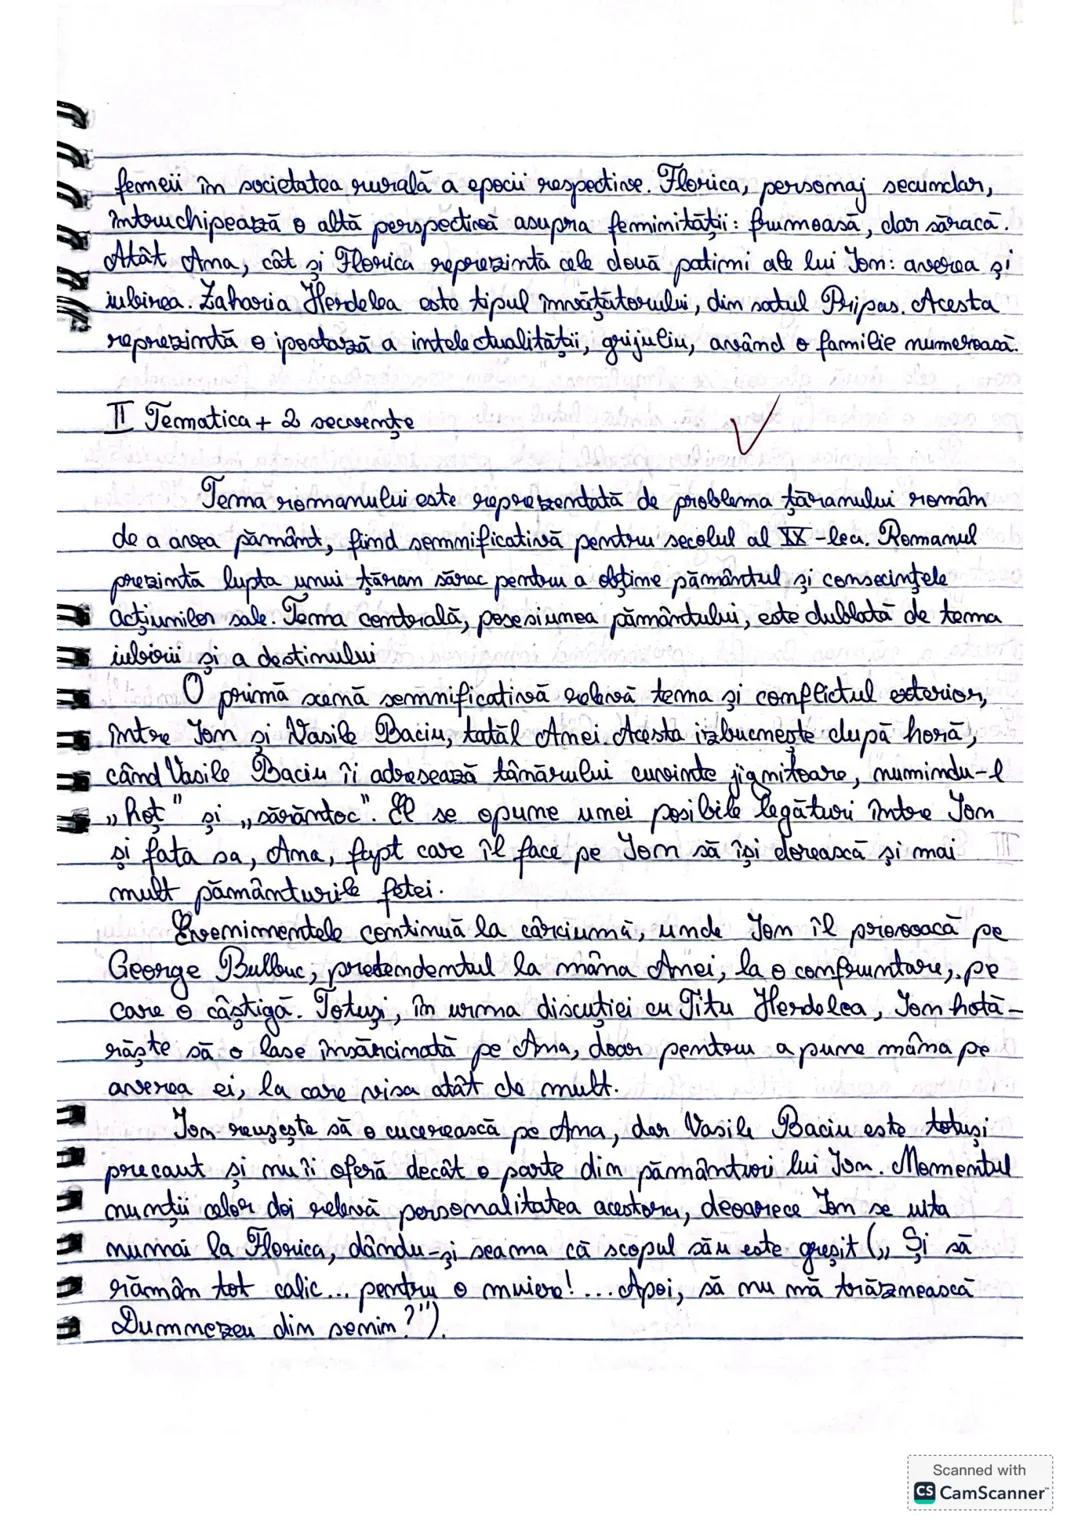 femeii în societatea rurală a epocii respective. Florica, personaj secundar,
întruchipează o altă perspectivă asupra feminității: frumoasă, dar săracă.
Atât Ana, cât și Florica reprezintă cele două patimi ale lui Ion: averea și
iubirea. Zaharia Herdelea este tipul învățătorului, din satul Pripas. Acesta
reprezintă o ipostază a intelectualității, grijuliu, având o familie numeroasă.
II Tematica + 2 secvențe
Tema romanului este reprezentată de problema țăranului român
de a avea pământ, fiind semnificativă pentru secolul al XX-lea. Romanul
prezintă lupta unui țăran sărac pentru a obține pământul și consecințele
acțiunilor sale. Tema centrală, posesiunea pământului, este dublată de tema
iubirii și a destinului
O primă scenă semnificativă relevă tema și conflictul exterior,
între Ion și Vasile Baciu, tatăl Anei. Acesta izbucnește după horă,
când Vasile Baciu îi adresează tânărului cuvinte jignitoare, numindu-l
„hoț" și „sărăntoc". El se opune unei posibile legături între Ion
și fata sa, Ana, fapt care îl face pe Ion să își dorească și mai
mult pământurile fetei.
Evenimentele continuă la cârciumă, unde Ion îl provoacă pe
George Bulbuc, pretendentul la mâna Anei, la o confruntare, pe
care o câștigă. Totuși, în urma discuției cu Titu Herdelea, Ion hotă-
răște să o lase însărcinată pe Ana, doar pentru a pune mâna pe
averea ei, la care visa atât de mult.
Ion reuzește să o cucerească pe Ana, dar Vasile Baciu este totuși
precaut și nu îi oferă decât o parte din pământuri lui Ion. Momentul
nunții celor doi relevă personalitatea acestora, deoarece Ion se uita
numai la Florica, dându-și seama că scopul său este greșit („Și să
rămân tot calic... pentru o muiere!... Apoi, să nu mă trăznească
Dumnezeu din senin?").
Scanned with
CS CamScanner